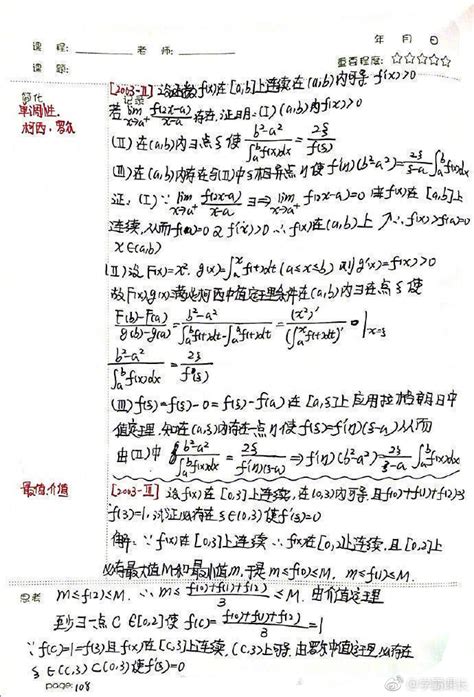 年 月 日
课程: 老师:
重要程度: ☆☆☆☆☆
课题:
简化 记录
单调性.
柯西.罗尔
[2003-II] 设函数f(x)在[a,b]上连续在(a,b)内可导 f'(x)>0
若 lim x→a+ f(2x-a)/(x-a) 存在, 证明: (I) (a,b)内f(x)>0
(II) 在(a,b)内∃点ξ使 (b²-a²)/∫ₐᵇf(x)dx = 2ξ/f(ξ)
(III) 在(a,b)内存在与(II)中ξ相异点η使f'(η)(b²-a²)=2ξ/(ξ-a) ∫ₐᵇf(x)dx
证: (I) ∵ lim x→a+ f(2x-a)/(x-a) ∃ ⇒ lim x→a+ f(2x-a)=0 由f(x)在[a,b]上
连续,从而f(a)=0 又f'(x)>0 ∴f(x)在(a,b)上↗ ∴f(x)>f(a)=0
x∈(a,b)
(II) 设F(x)=x². g(x)=∫ₐˣf(t)dt (a≤x≤b) 则g'(x)=f(x)>0
故F(x),g(x)满足柯西中值定理条件在(a,b)内∃点ξ使
(F(b)-F(a))/(g(b)-g(a)) = (b²-a²)/(∫ₐᵇf(t)dt-∫ₐᵃf(t)dt) = (x²)'/(∫ₐˣf(t)dt)' |x=ξ
(b²-a²)/∫ₐᵇf(x)dx = 2ξ/f(ξ)
(III) f(ξ)=f(ξ)-0=f(ξ)-f(a)在[a,ξ]上应用拉格朗日中
值定理,知在(a,ξ)内存在一点η使f(ξ)=f'(η)(ξ-a)从而
由(II)中 (b²-a²)/∫ₐᵇf(x)dx = 2ξ/f'(η)(ξ-a) ⇒ f'(η)(b²-a²)=2ξ/(ξ-a) ∫ₐᵇf(x)dx
最值.介值
[2003-III] 设f(x)在[0,3]上连续,在(0,3)内可导 且f(0)+f(1)+f(2)=3
f(3)=1,试证必存在ξ∈(0,3)使f'(ξ)=0
解: ∵f(x)在[0,3]上连续 ∴f(x)在[0,2]上连续, 且[0,2]上
必有最大值M和最小值m,于是 m≤f(0)≤M, m≤f(1)≤M.
思考 m≤f(2)≤M. ∴m≤(f(0)+f(1)+f(2))/3≤M. 由介值定理
至少∃一点C∈[0,2]使f(c)=(f(0)+f(1)+f(2))/3=1
∵f(c)=1=f(3)且f(x)在[C,3]上连续,(C,3)上可导 由罗尔中值定理,必存在
ξ∈(C,3)⊂(0,3)使f'(ξ)=0
page: 108
@学霸课长